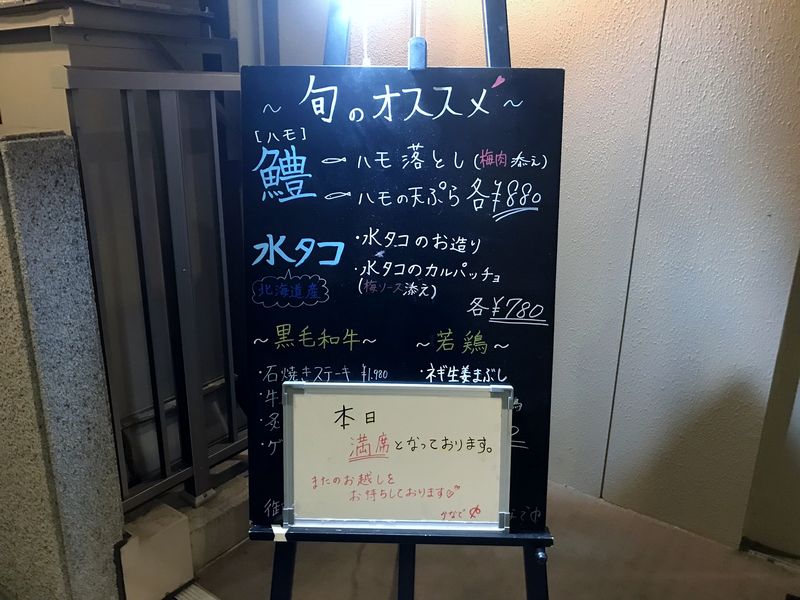 ～ 旬のオススメ ～
[ハモ]
鱧 ハモ落とし(梅肉添え)
ハモの天ぷら 各¥880
水タコ ・水タコのお造り
北海道産 ・水タコのカルパッチョ
(梅ソース添え)
各¥780
～黒毛和牛～ ～若鶏～
・石焼きステーキ ¥1,980 ・ネギ生姜まぶし
・牛
・炙
・ゲ
本日
満席となっております。
またのお越しを
お待ちしております♡
かなでや